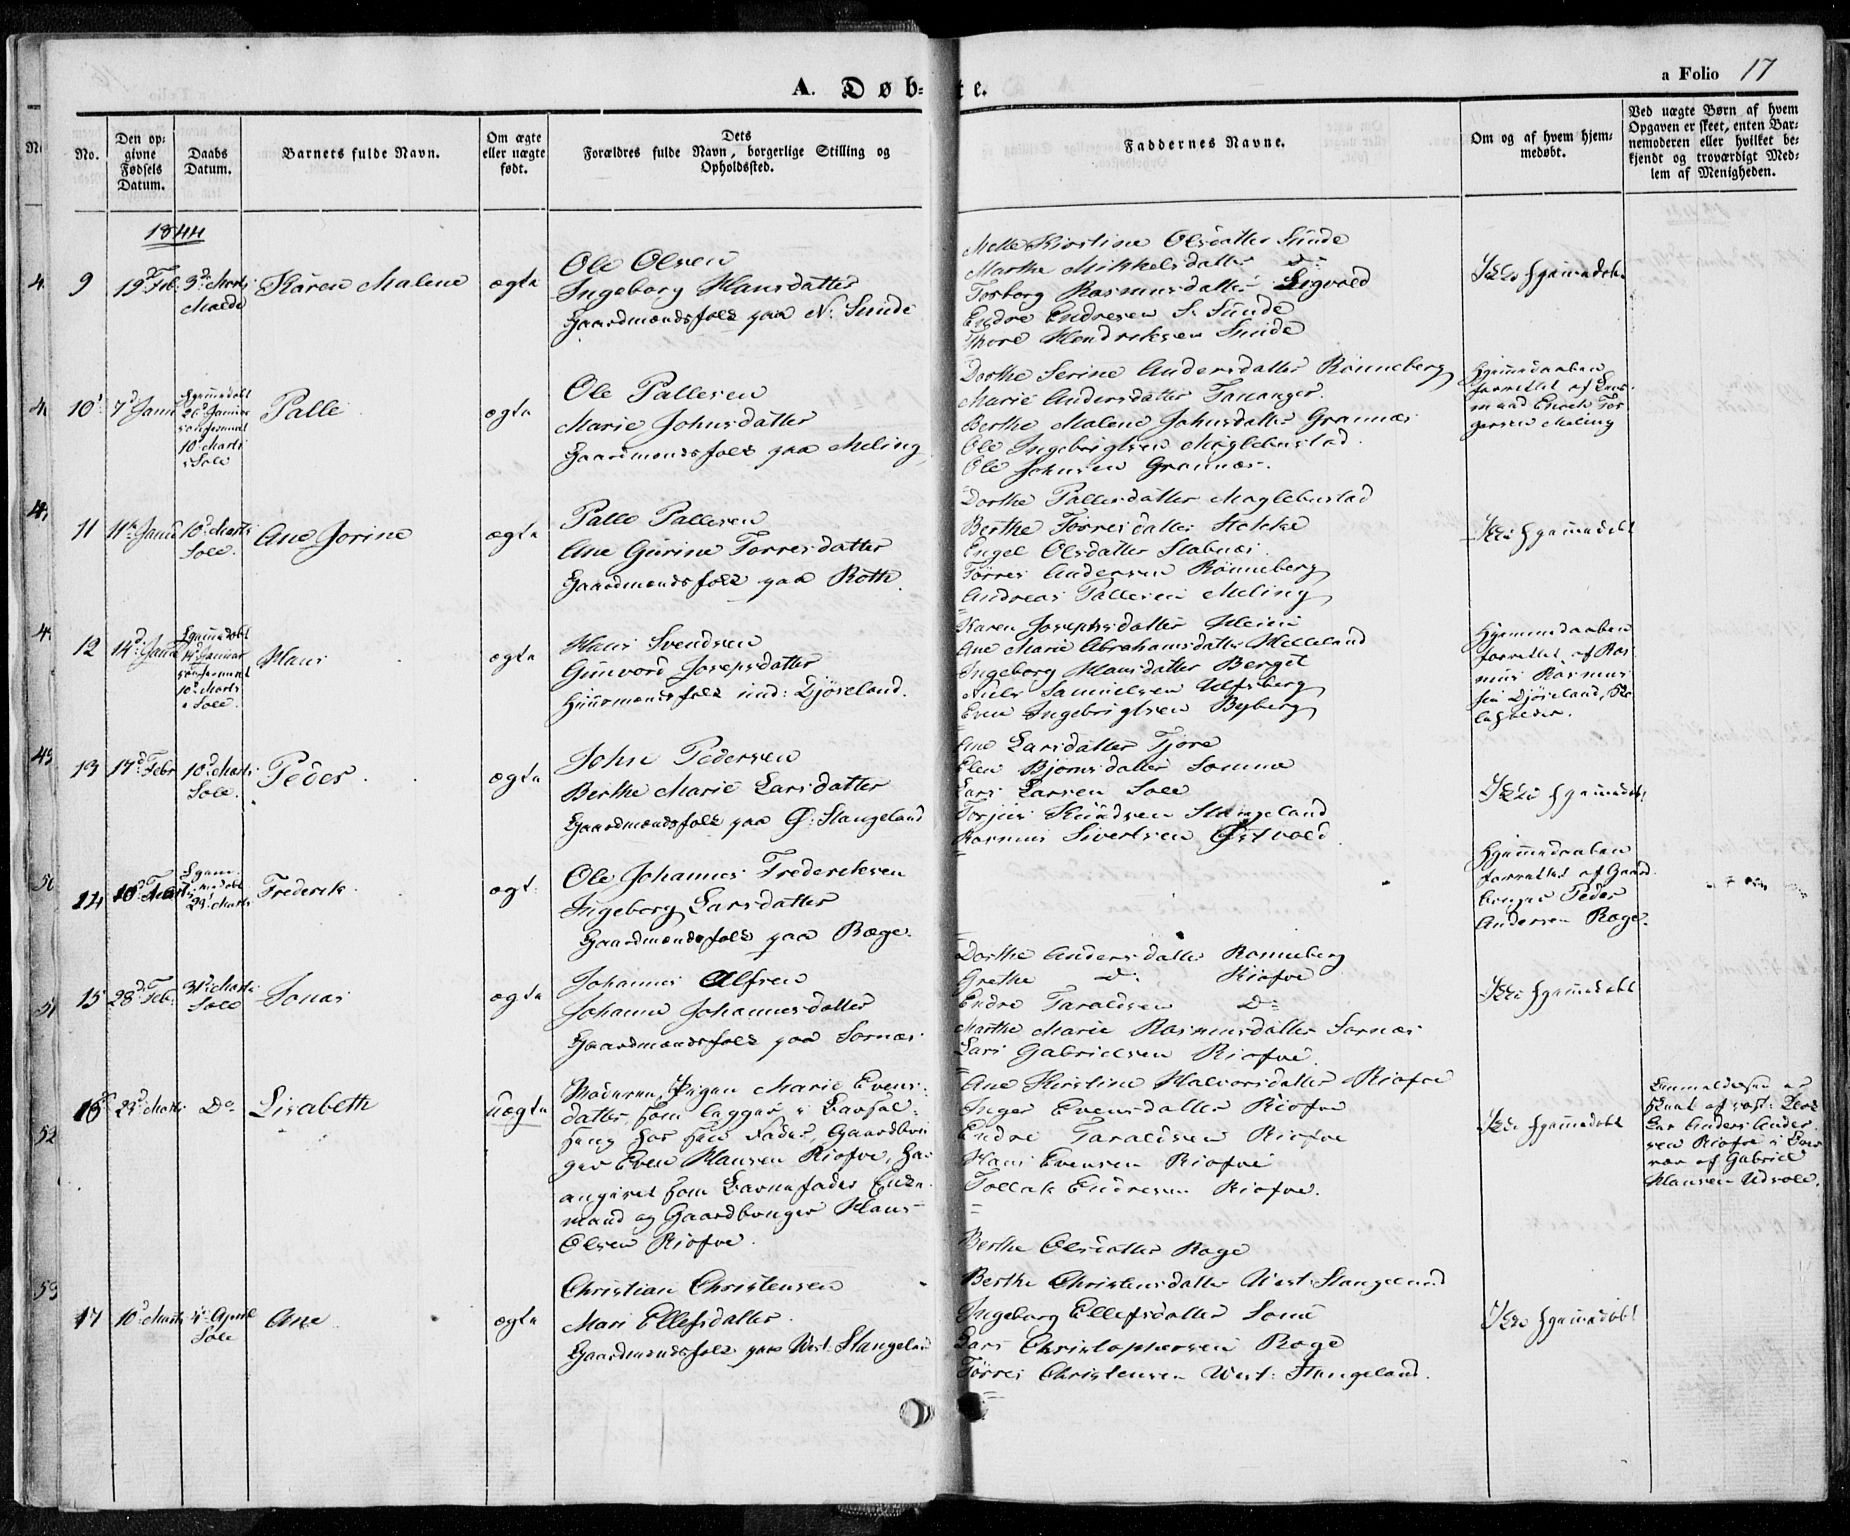 A. Døb-te.
a Folio 17
No.
Den op-
givne
Fødsels
Datum.
Daabs
Datum.
Barnets fulde Navn.
Om ægte
eller uægte
født.
Dets
Forældres fulde Navn, borgerlige Stilling og
Opholdssted.
Faddernes Navne.
Om og af hvem hjem-
medøbt.
Ved uægte Børn af hvem
Opgaven er skeet, enten Bar-
nemoderen eller hvilket be-
kjendt og troværdigt Med-
lem af Menigheden.
1844
9
19d Feb.
3d Marts
Malde
Karen Malene
ægte
Ole Olsen
Ingeborg Hansdatter
Gaardmandsfolk paa N. Sunde
Mette Kirstine Olsdatter Sunde
Marthe Mikkelsdatter Do
Torborg Rasmusdatter Sigvold
Endre Endresen S. Sunde
Thore Hendriksen Sunde
Ikke hjemmedøbt
10
7d Janu
Hjemmedøbt
26d Januar
10d Marts
i Sole
Palle
ægte
Ole Pallesen
Marie Johnsdatter
Gaardmandsfolk paa Meling
Dorthe Serine Andersdatter Rønneberg
Marie Andersdatter Tananger
Berthe Malene Johnsdatter Grannæs
Ole Ingebrigtsen Møglebustad
Ole Johnsen Grannæs.
Hjemmedaaben
forrettet af Lens-
mand Enoch Tor
gersen Meling
11
11te Janu
10d Marts
Sole.
Ane Jorine
ægte
Palle Pallesen
Ane Gurine Torresdatter
Gaardmandsfolk paa Roth.
Dorthe Pallesdatter Møglebustad
Berthe Torresdatter Stokke
Engel Olsdatter Stabnæs
Torres Andersen Rønneberg
Andreas Pallesen Meling
Ikke hjemmedøbt
12
14d Janu
Hjemmedøbt
14d Januar
10d Marts
i Sole.
Hans
ægte
Hans Svendsen
Gunvord Josepsdatter
Huusmandsfolk und: Djøseland.
Karen Josephsdatter
Ane Marie Abrahamsdatter Helleland
Ingeborg Hansdatter Berget
Niels Samuelsen Ulfsberg
Even Ingebrigtsen Byberg
Hjemmedaaben
forrettet af Ras
mus Rasmus
sen Djøseland,
13
17d Febr
10d Marts
Sole.
Peder
ægte
John Pedersen
Berthe Marie Larsdatter
Gaardmandsfolk paa Ø: Stangeland
Ane Larsdatter Tjore
Elen Bjørnsdatter Somme
Lars Larsen Sole
Torjus Knudsen Stangeland
Rasmus Sivertsen Østvold
Ikke hjemmedøbt
14
Hjem
medøbt
29d Marts
Frederik
ægt:
Ole Johannes Frederiksen
Ingeborg Larsdatter
Gaardmandsfolk paa Ræge.
Hjemmedaaben
forrettet af Gaard
bruger Peder
Andersen Ræge.
15
28d Feb.
31d Marts
Sole
Jonas
ægte
Johannes Alfsen
Johanne Johannesdatter
Gaardmandsfolk paa Sørnæs
Dorthe Andersdatter Rønneberg
Grethe Do Risfoe
Endre Taraldsen Do
Marthe Marie Rasmusdatter Sørnæs
Lars Gabrielsen Risfoe.
Ikke hjemmedøbt
16
23d Marts
Do
Lisabeth
uægte
Moderen, Pigen Marie Evens-
datter, som ligger i Barsel-
seng hos sin Fader, Gaardbru
ger Even Hansen Risfoe, har
angivet som Barnefader Enke-
mand og Gaardbruger Hans
Olsen Risfoe.
Ane Kirstine Halvorsdatter Risfoe
Inger Evensdatter Risfoe
Endre Taraldsen Risfoe
Hans Evensen Risfoe
Tollak Endresen Risfoe.
Ikke hjemmedøbt
Anmeldelsen er
skeet af const: Klok
ker Anders Ander
sen Risfoe i Nær
vær af Gabriel
Hansen Udsole.
17
10d Marts
4d April
Sole
Ane
ægte
Christian Christensen
Mari Ellefsdatter.
Gaardmandsfolk paa West: Stangeland
Berthe Olsdatter Ræge
Berthe Christensdatter West: Stangeland
Ingeborg Ellefsdatter Somme
Lars Christophersen Ræge
Tørres Christensen West: Stangeland.
Ikke hjemmedøbt